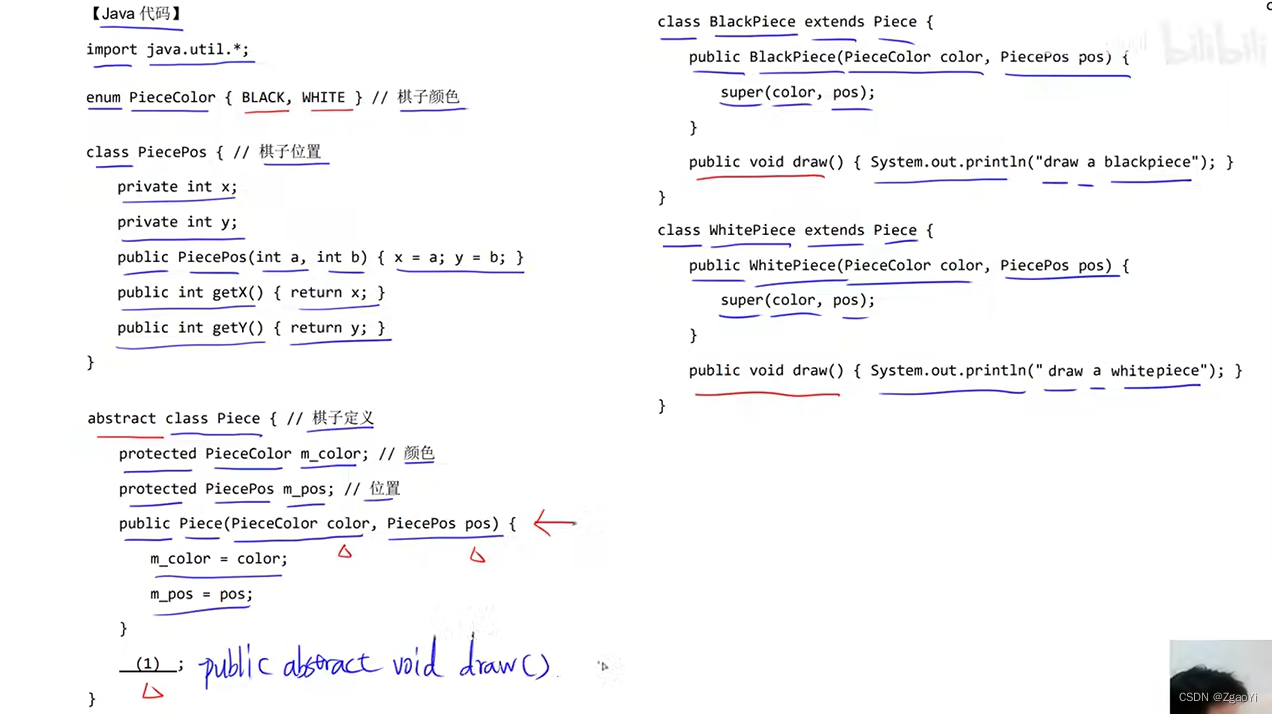 【Java 代码】
import java.util.*;
enum PieceColor { BLACK, WHITE } // 棋子颜色
class PiecePos { // 棋子位置
private int x;
private int y;
public PiecePos(int a, int b) { x = a; y = b; }
public int getX() { return x; }
public int getY() { return y; }
}
abstract class Piece { // 棋子定义
protected PieceColor m_color; // 颜色
protected PiecePos m_pos; // 位置
public Piece(PieceColor color, PiecePos pos) {
m_color = color;
m_pos = pos;
}
(1) ; public abstract void draw()
}
class BlackPiece extends Piece {
public BlackPiece(PieceColor color, PiecePos pos) {
super(color, pos);
}
public void draw() { System.out.println("draw a blackpiece"); }
}
class WhitePiece extends Piece {
public WhitePiece(PieceColor color, PiecePos pos) {
super(color, pos);
}
public void draw() { System.out.println(" draw a whitepiece"); }
}
bilibili
CSDN @ZgaoYi